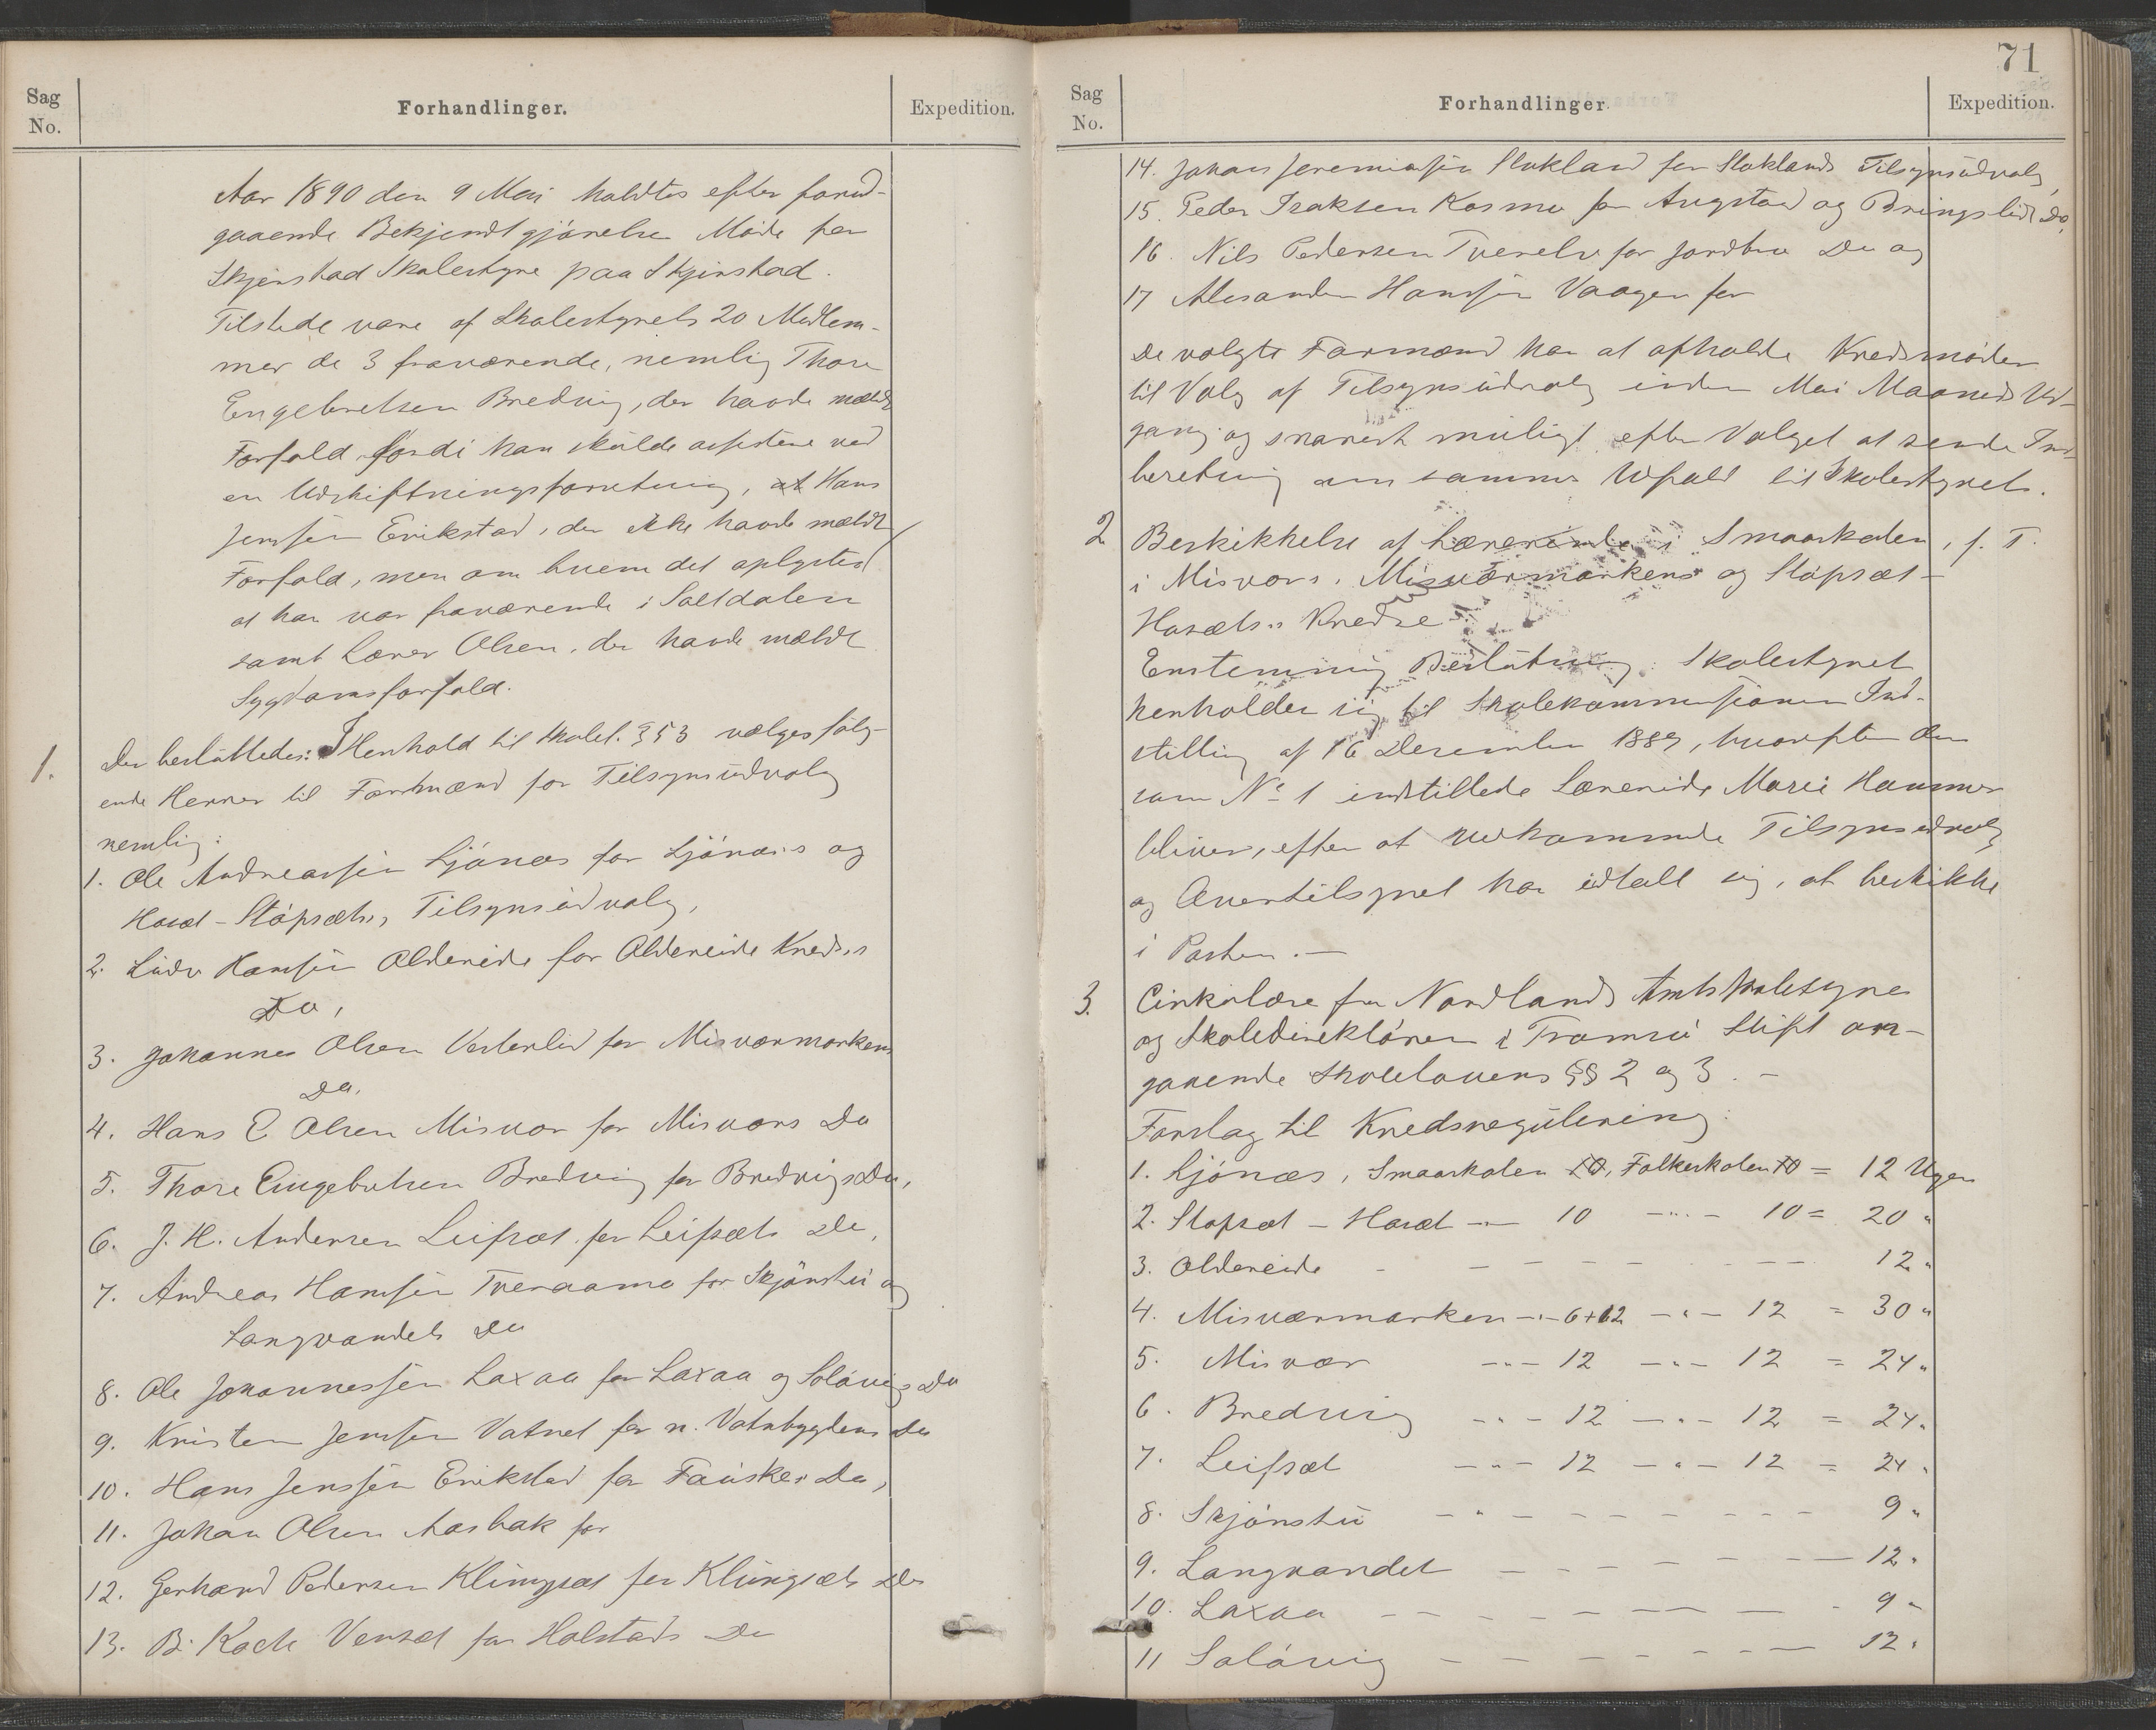 Sag
No.
Forhandlinger.
Expedition.
Aar 1890 den 9 Mai holdtes efter forud-
gaaende Bekjendtgjørelse Møde for
Skjerstad Skolestyre paa Skjerstad.
Tilstede vare af Skolestyrets 20 Medlem-
mer de 3 fraværende, nemlig Thore
Engebretsen Bredvig, der havde meldt
Forfald fordi han skulde assistere ved
en Udskiftningsforretning, at Hans
Jensen Erikstad, der ikke havde meldt
Forfald, men om hvem det oplystes
at han var fraværende i Saltdalen
samt Lærer Olsen, der havde meldt
Sygdomsforfald.
1. Der besluttedes: I Henhold til Skolel. § 53 vælges følg-
ende Herrer til Formænd for Tilsynsudvalg
nemlig:
1. Ole Andreassen Ljønæs for Ljønæs's og
Haset-Støpsæts's Tilsynsudvalg,
2. Ludv Hansen Oldereide for Oldereide Kreds's
Do,
3. Johannes Olsen Vesterlid for Misværmarkens
Do,
4. Hans E Olsen Misvær for Misværs Do
5. Thore Engebretsen Bredvig for Bredvigs Do,
6. J. H. Andersen Leifsæt for Leifsæts Do,
7. Andreas Hansen Tveraamo for Skjønstu og
Langvandets Do
8. Ole Johannessen Laxaa for Laxaa og Soløvigs Do
9. Kristen Jensen Vatnet for n. Vatnbygdens Do
10. Hans Jenssen Erikstad for Fauskes Do,
11. Johan Olsen Aasbak for
12. Gerhard Pedersen Klungset for Klungsets Do
13. B. Koch Venset for Holstads Do
71
Sag
No.
Forhandlinger
Expedition.
14. Johan Jeremiassen Stokland for Stoklands Tilsynsudvalg,
15. Peder Isaksen Kosmo for Augstad og Bringslid Do,
16. Nils Pedersen Tverelv for Jordbro Do og
17 Alexander Hanssen Vaagen for
De valgte Formænd har at afholde Kredsmøder
til Valg af Tilsynsudvalg inden Mai Maaneds Ud-
gang og snarest muligt efter Valget at sende Ind-
beretning om sammes Udfald til Skolestyret.
2 Beskikkelse af Lærerinde i Smaaskolen, f. T.
i Misværs, Misværmarkens og Støpsæt-
Hasæts's Kredse
Enstemmig Beslutning: Skolestyret
henholder sig til Skolekommissionens Ind-
stilling af 16 December 1889, hvorefter den
som No 1 indstillede Lærerinde Marie Hammer
bliver, efter at vedkommende Tilsynsudvalg
og Overtilsynet har udtalt sig, at beskikke
i Posten.—
3. Cirkulære fra Nordlands Amtsskolestyre
og Skoledirektøren i Tromsø Stift an-
gaaende Skolelovens §§ 2 og 3. —
Forslag til Kredsregulering:
1. Ljønæs, Smaaskolen 10, Folkeskolen 10 = 12 Uger
2. Støpsæt - Haset —"— 10 —"— 10 = 20 "
3. Oldereide - — — — — 12 "
4. Misværmarken —"— 6+12 —"— 12 = 30 "
5. Misvær —"— 12 —"— 12 = 24 "
6. Bredvig —"— 12 —"— 12 = 24 "
7. Leifsæt —"— 12 —"— 12 = 24 "
8. Skjønstu — — — — — 9 "
9. Langvandet — — — — — 12 "
10. Laxaa — — — — — 9 "
11 Soløvig — — — — — 12 "